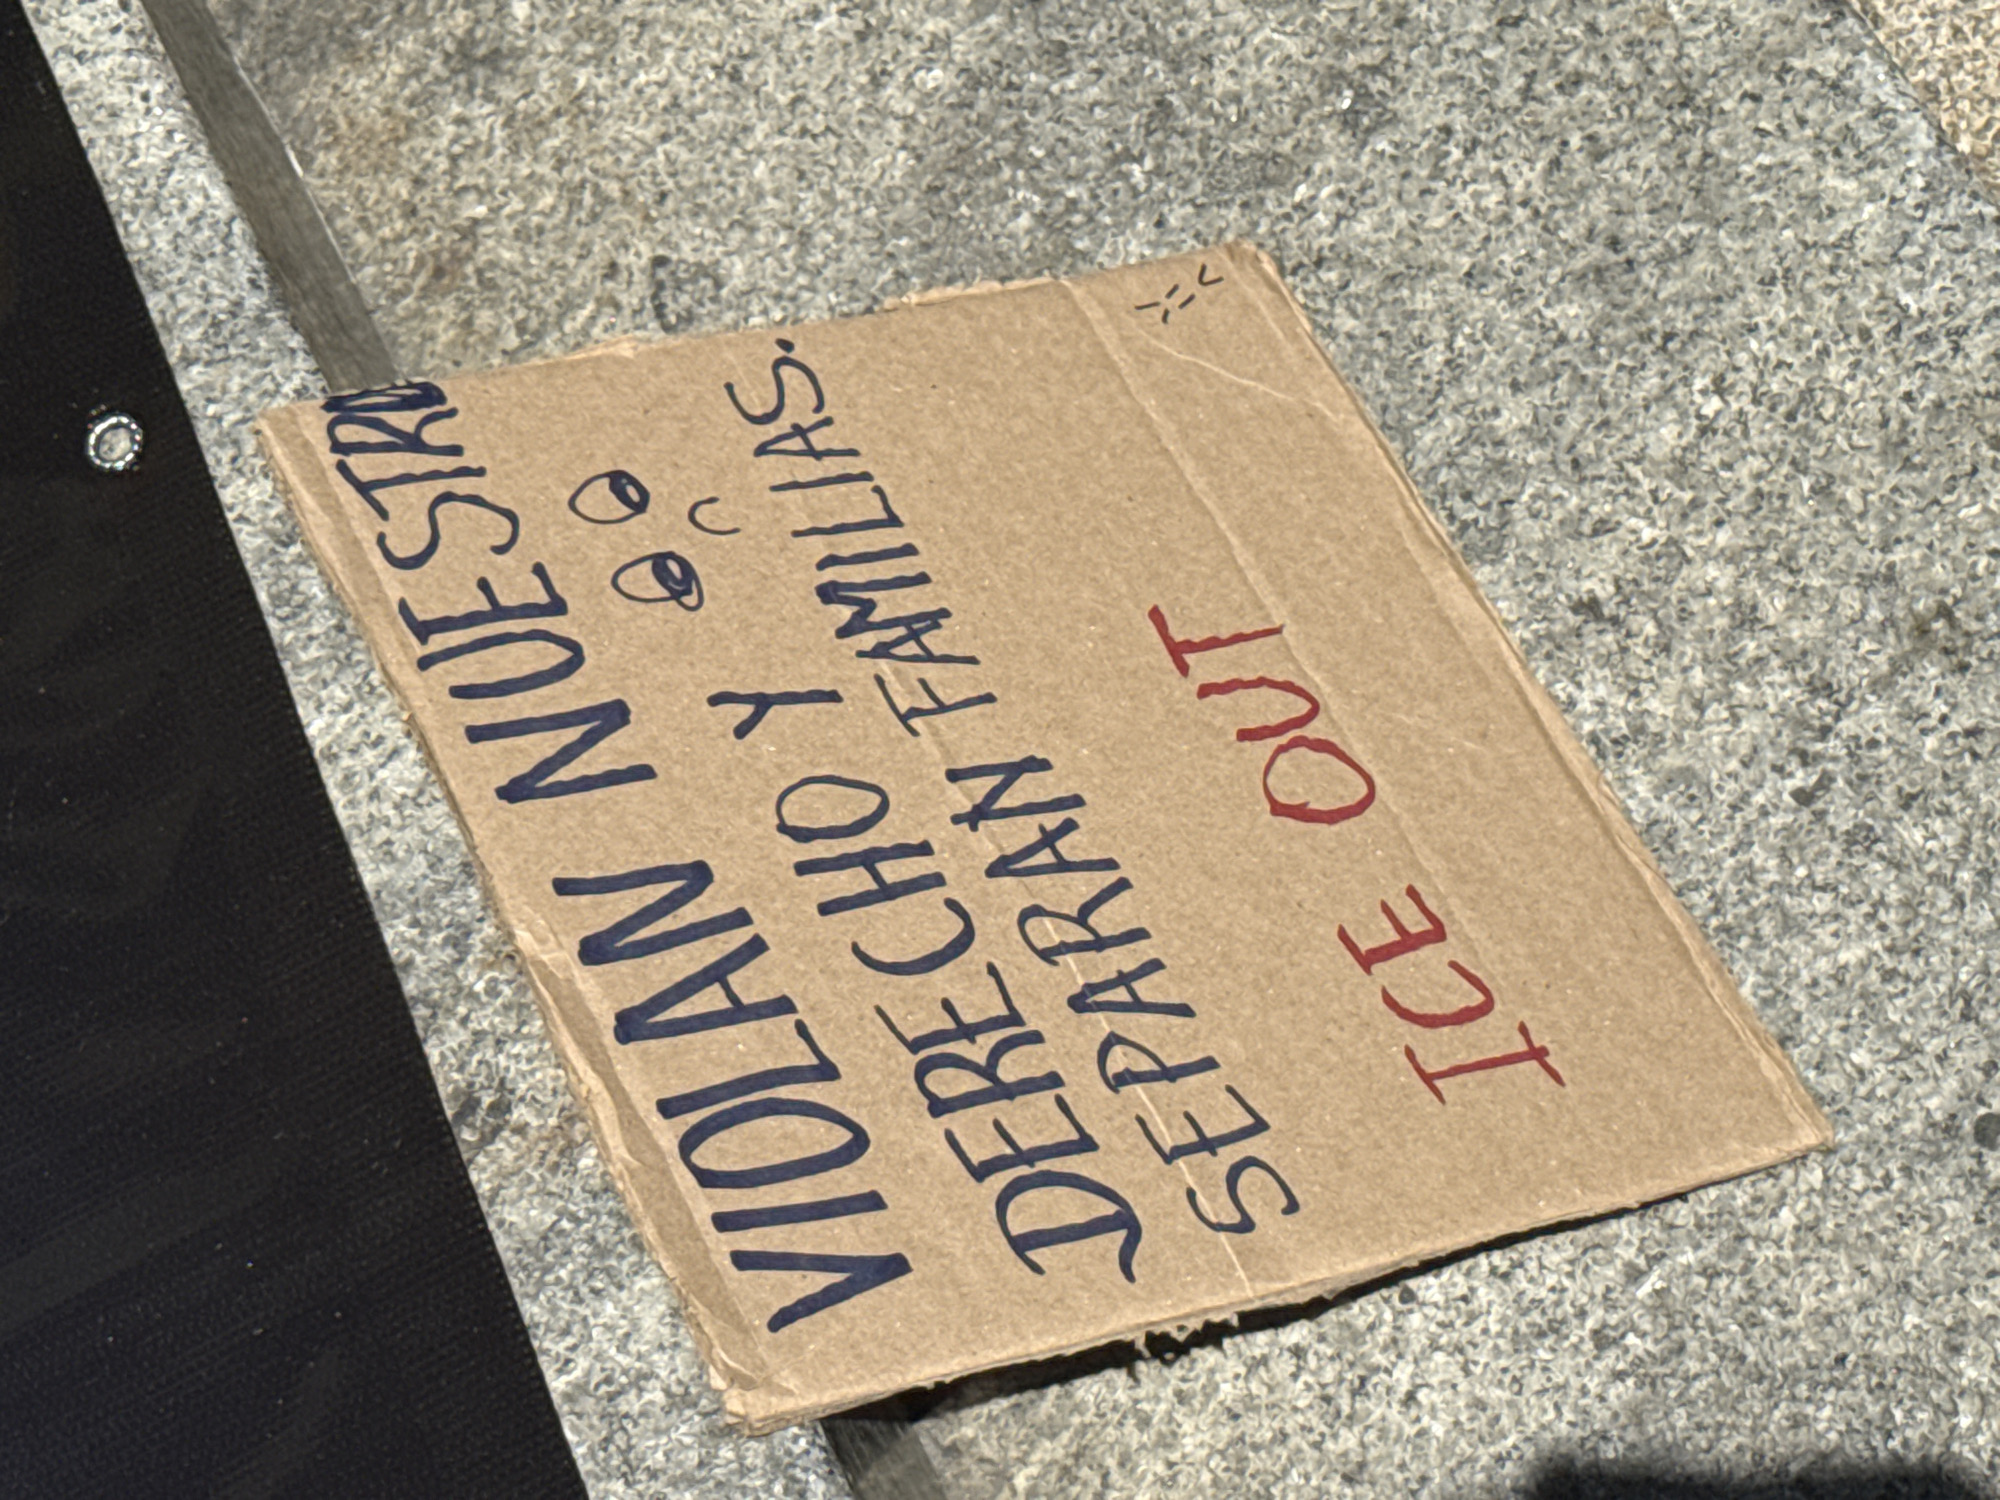 VIOLAN NUESTRO
DERECHO Y
SEPARAN FAMILIAS.
ICE OUT